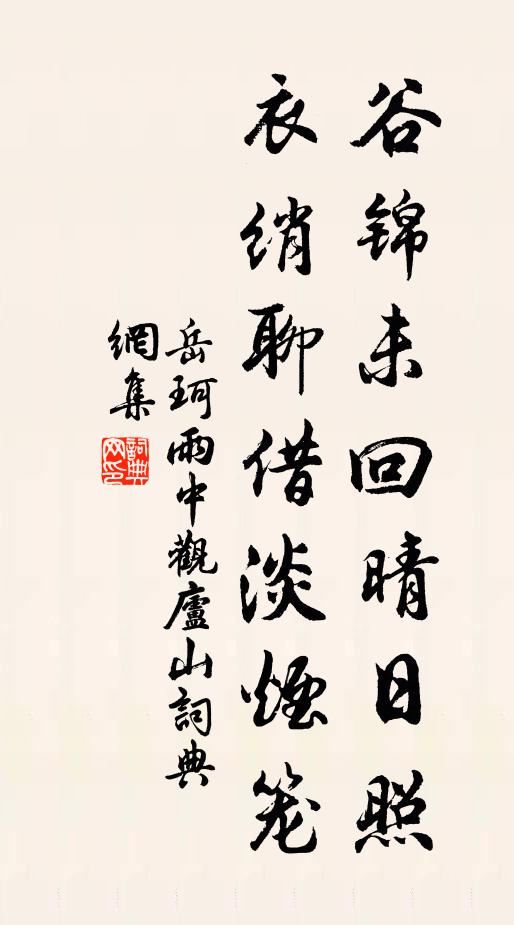 谷锦未回晴日照
衣绡聊借淡煙笼
岳珂雨中觀廬山詞典
網集
詞典
网印